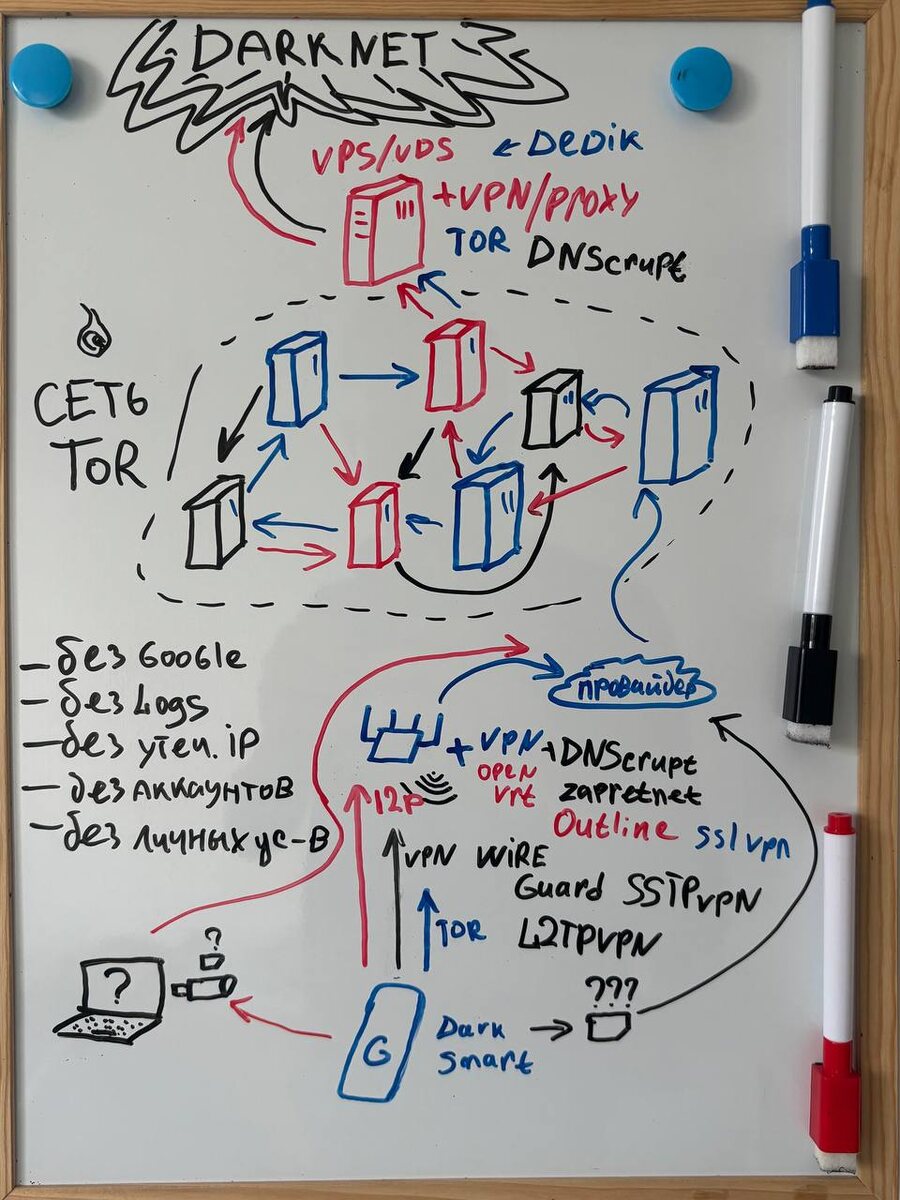 DARKNET
VPS/VDS ← DEDIK
+VPN/PROXY
TOR DNScrupt
СЕТЬ
TOR
– без GOOGLE
– без Logs
– без утеч. iP
– без АККАУНТОВ
– без личных ус-в
провайдер
+ VPN + DNScrupt
OPEN
vrt zapretnet
I2P
Outline sslvpn
VPN WiRE
Guard SSTPvpn
TOR L2TPVPN
?
?
???
G
Dark
Smart